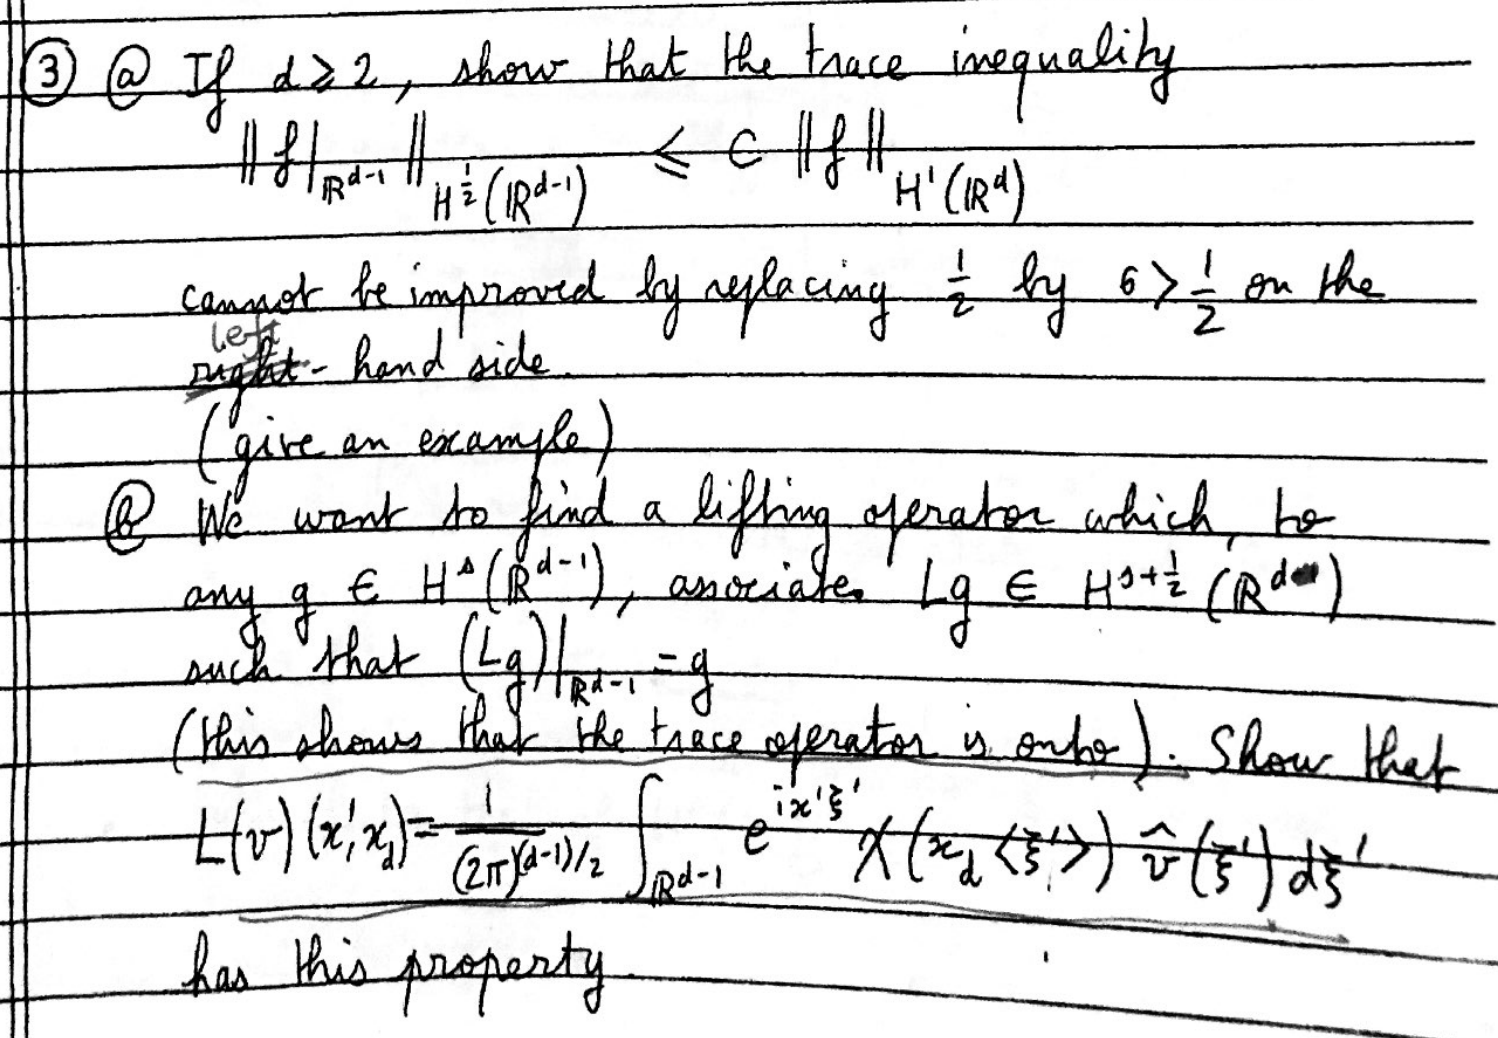 ③ ⓐ If d ≥ 2, show that the trace inequality
‖f|_{ℝ^{d-1}}‖_{H^{1/2}(ℝ^{d-1})} ≤ C ‖f‖_{H^1(ℝ^d)}
cannot be improved by replacing 1/2 by σ > 1/2 on the
left
right-hand side.
(give an example)
ⓑ We want to find a lifting operator which, to
any g ∈ H^s(ℝ^{d-1}), associates Lg ∈ H^{s+1/2}(ℝ^d)
such that (Lg)|_{ℝ^{d-1}} = g
(this shows that the trace operator is onto). Show that
L(v)(x', x_d) = 1/(2π)^{(d-1)/2} ∫_{ℝ^{d-1}} e^{ix'ξ'} χ(x_d <ξ'>) v̂(ξ') dξ'
has this property.